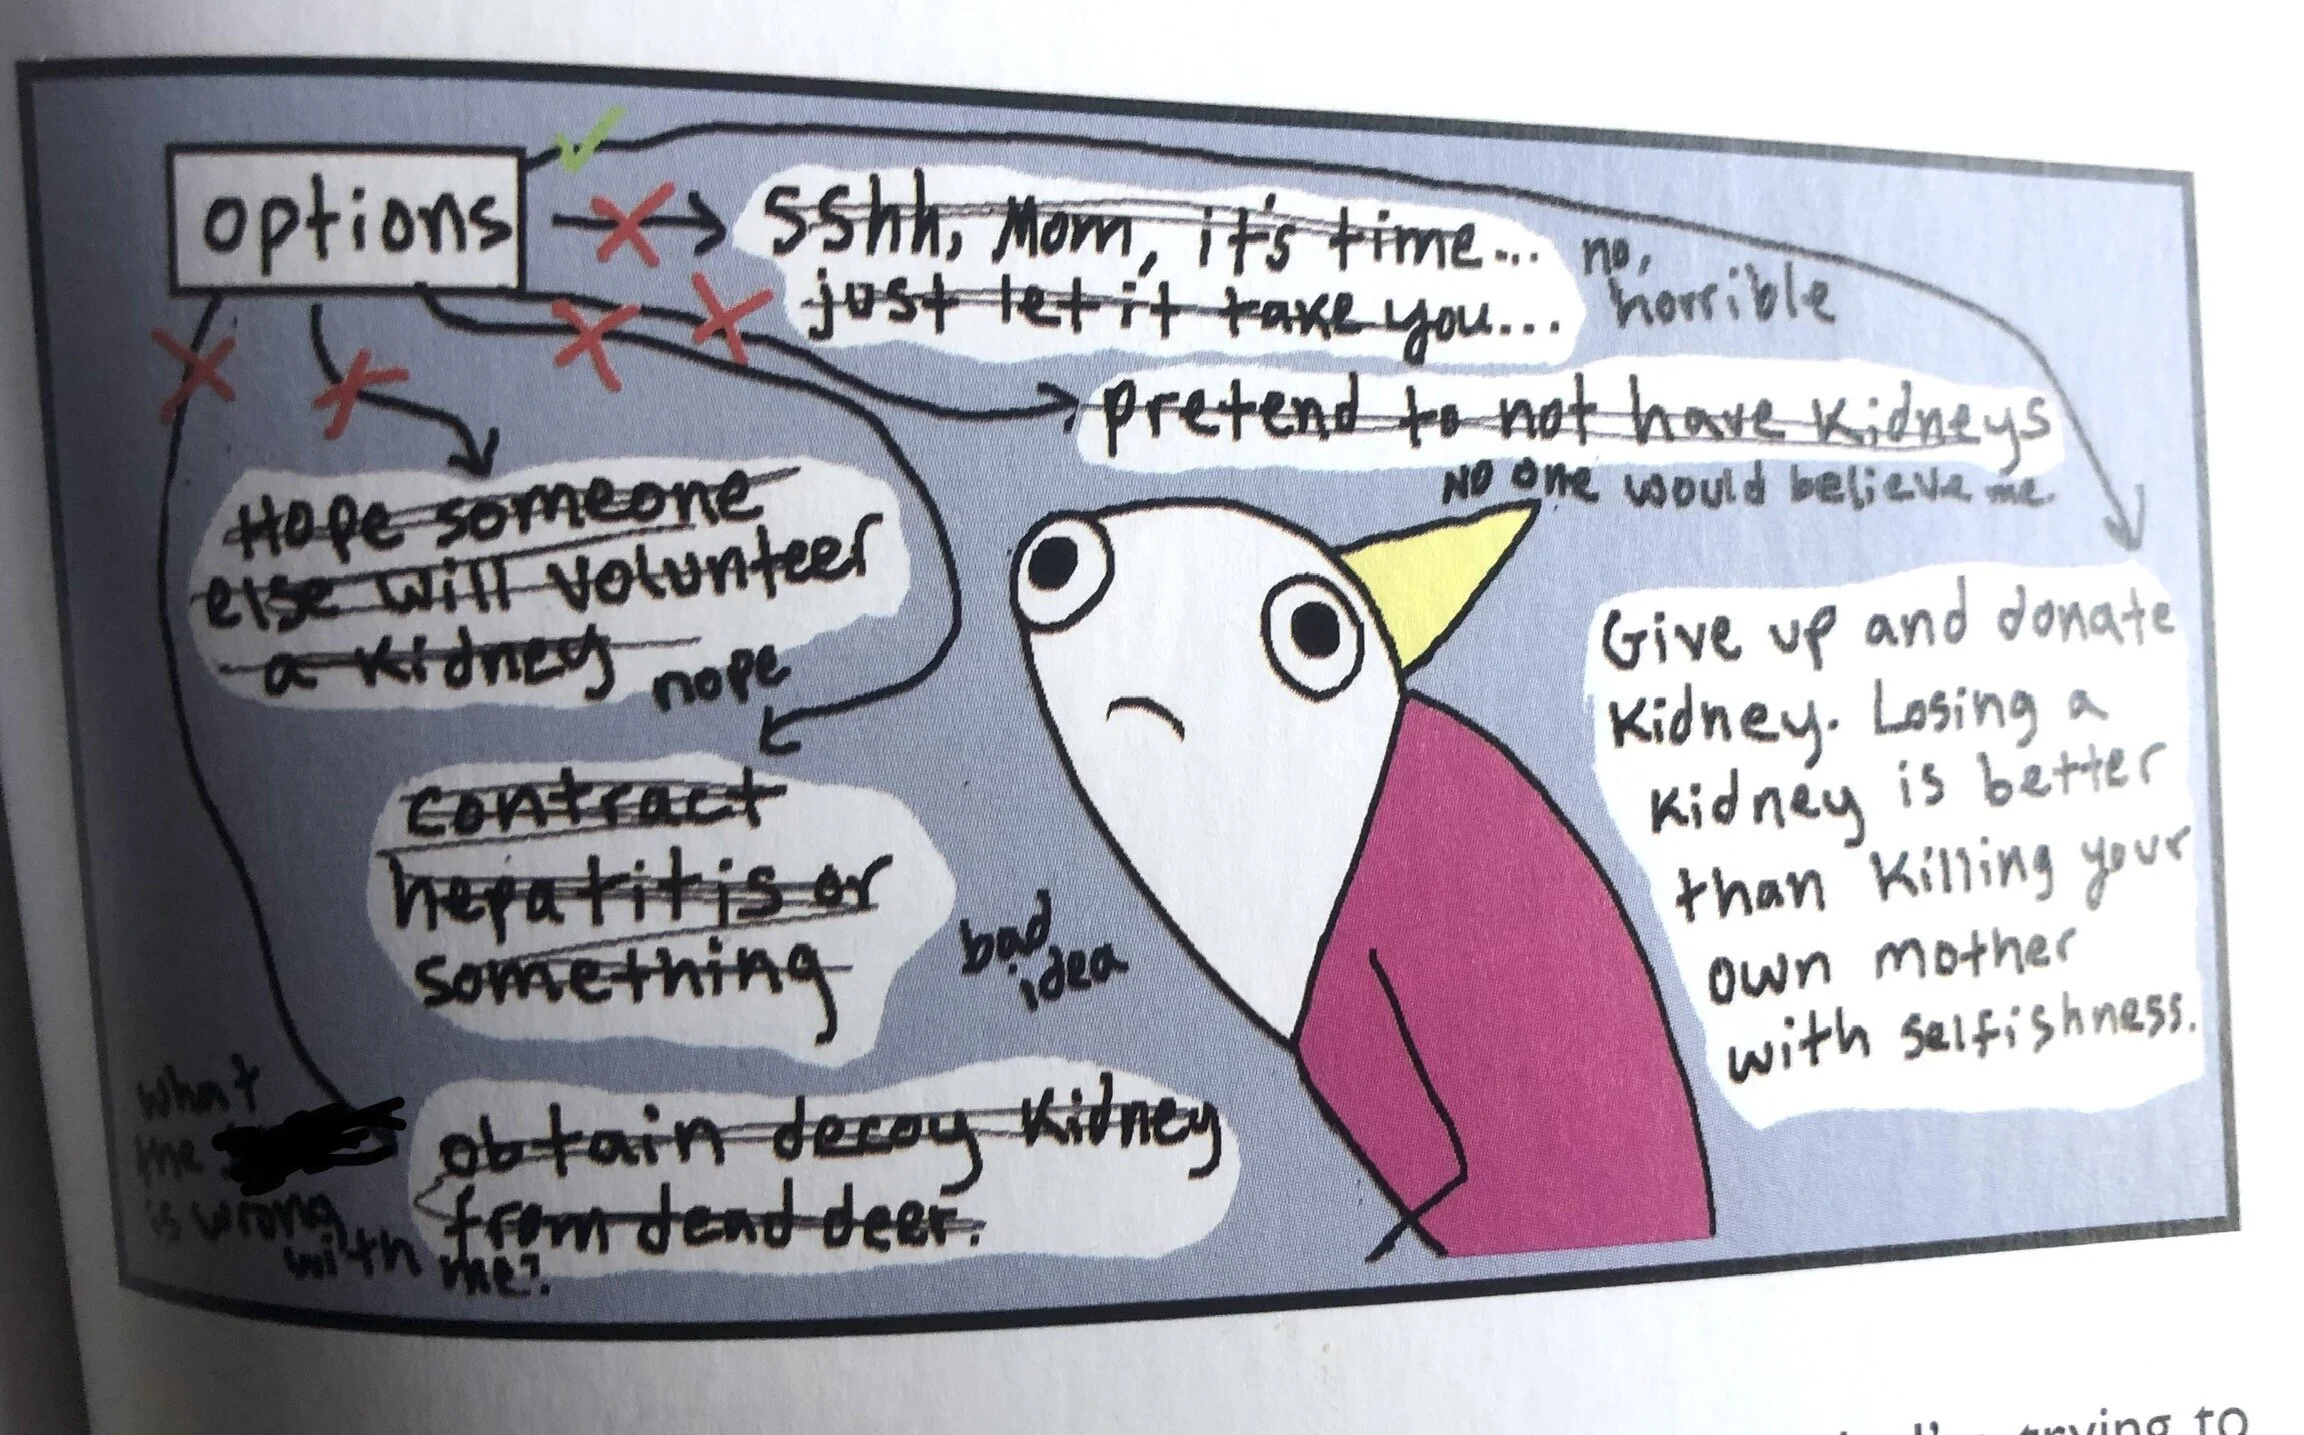 options
sshh, Mom, it's time...
just let it take you...
no,
horrible
pretend to not have kidneys
NO one would believe me.
Hope someone
else will volunteer
a kidney
nope
contract
hepatitis or
something
bad
idea
obtain decoy kidney
from dead deer.
what
the
is wrong
with me?
Give up and donate
kidney. Losing a
kidney is better
than killing your
own mother
with selfishness.
trying to